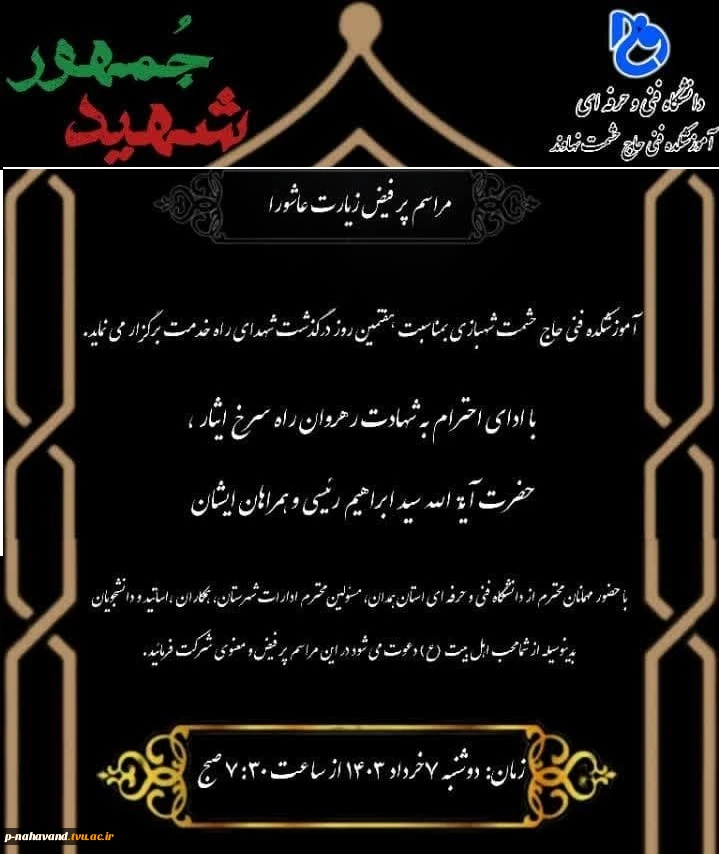 جُمهور
شهید
دانشگاه فنی و حرفه ای
آموزشکده فنی حاج حشمت نهاوند
مراسم پر فیض زیارت عاشورا
آموزشکده فنی حاج حشمت شهبازی بمناسبت هفتمین روز درگذشت شهدای راه خدمت برگزار می نماید.
با ادای احترام به شهادت رهروان راه سرخ ایثار ،
حضرت آیة الله سید ابراهیم رئیسی و همراهان ایشان
با حضور مهمانان محترم از دانشگاه فنی و حرفه ای استان همدان، مسئولین محترم ادارات شهرستان، همکاران ،اساتید و دانشجویان
بدینوسیله از شما محب اهل بیت (ع) دعوت می شود در این مراسم پر فیض و معنوی شرکت فرمائید.
زمان: دوشنبه ۷خرداد ۱۴۰۳ از ساعت ۷:۳۰ صبح
p-nahavand.tvu.ac.ir